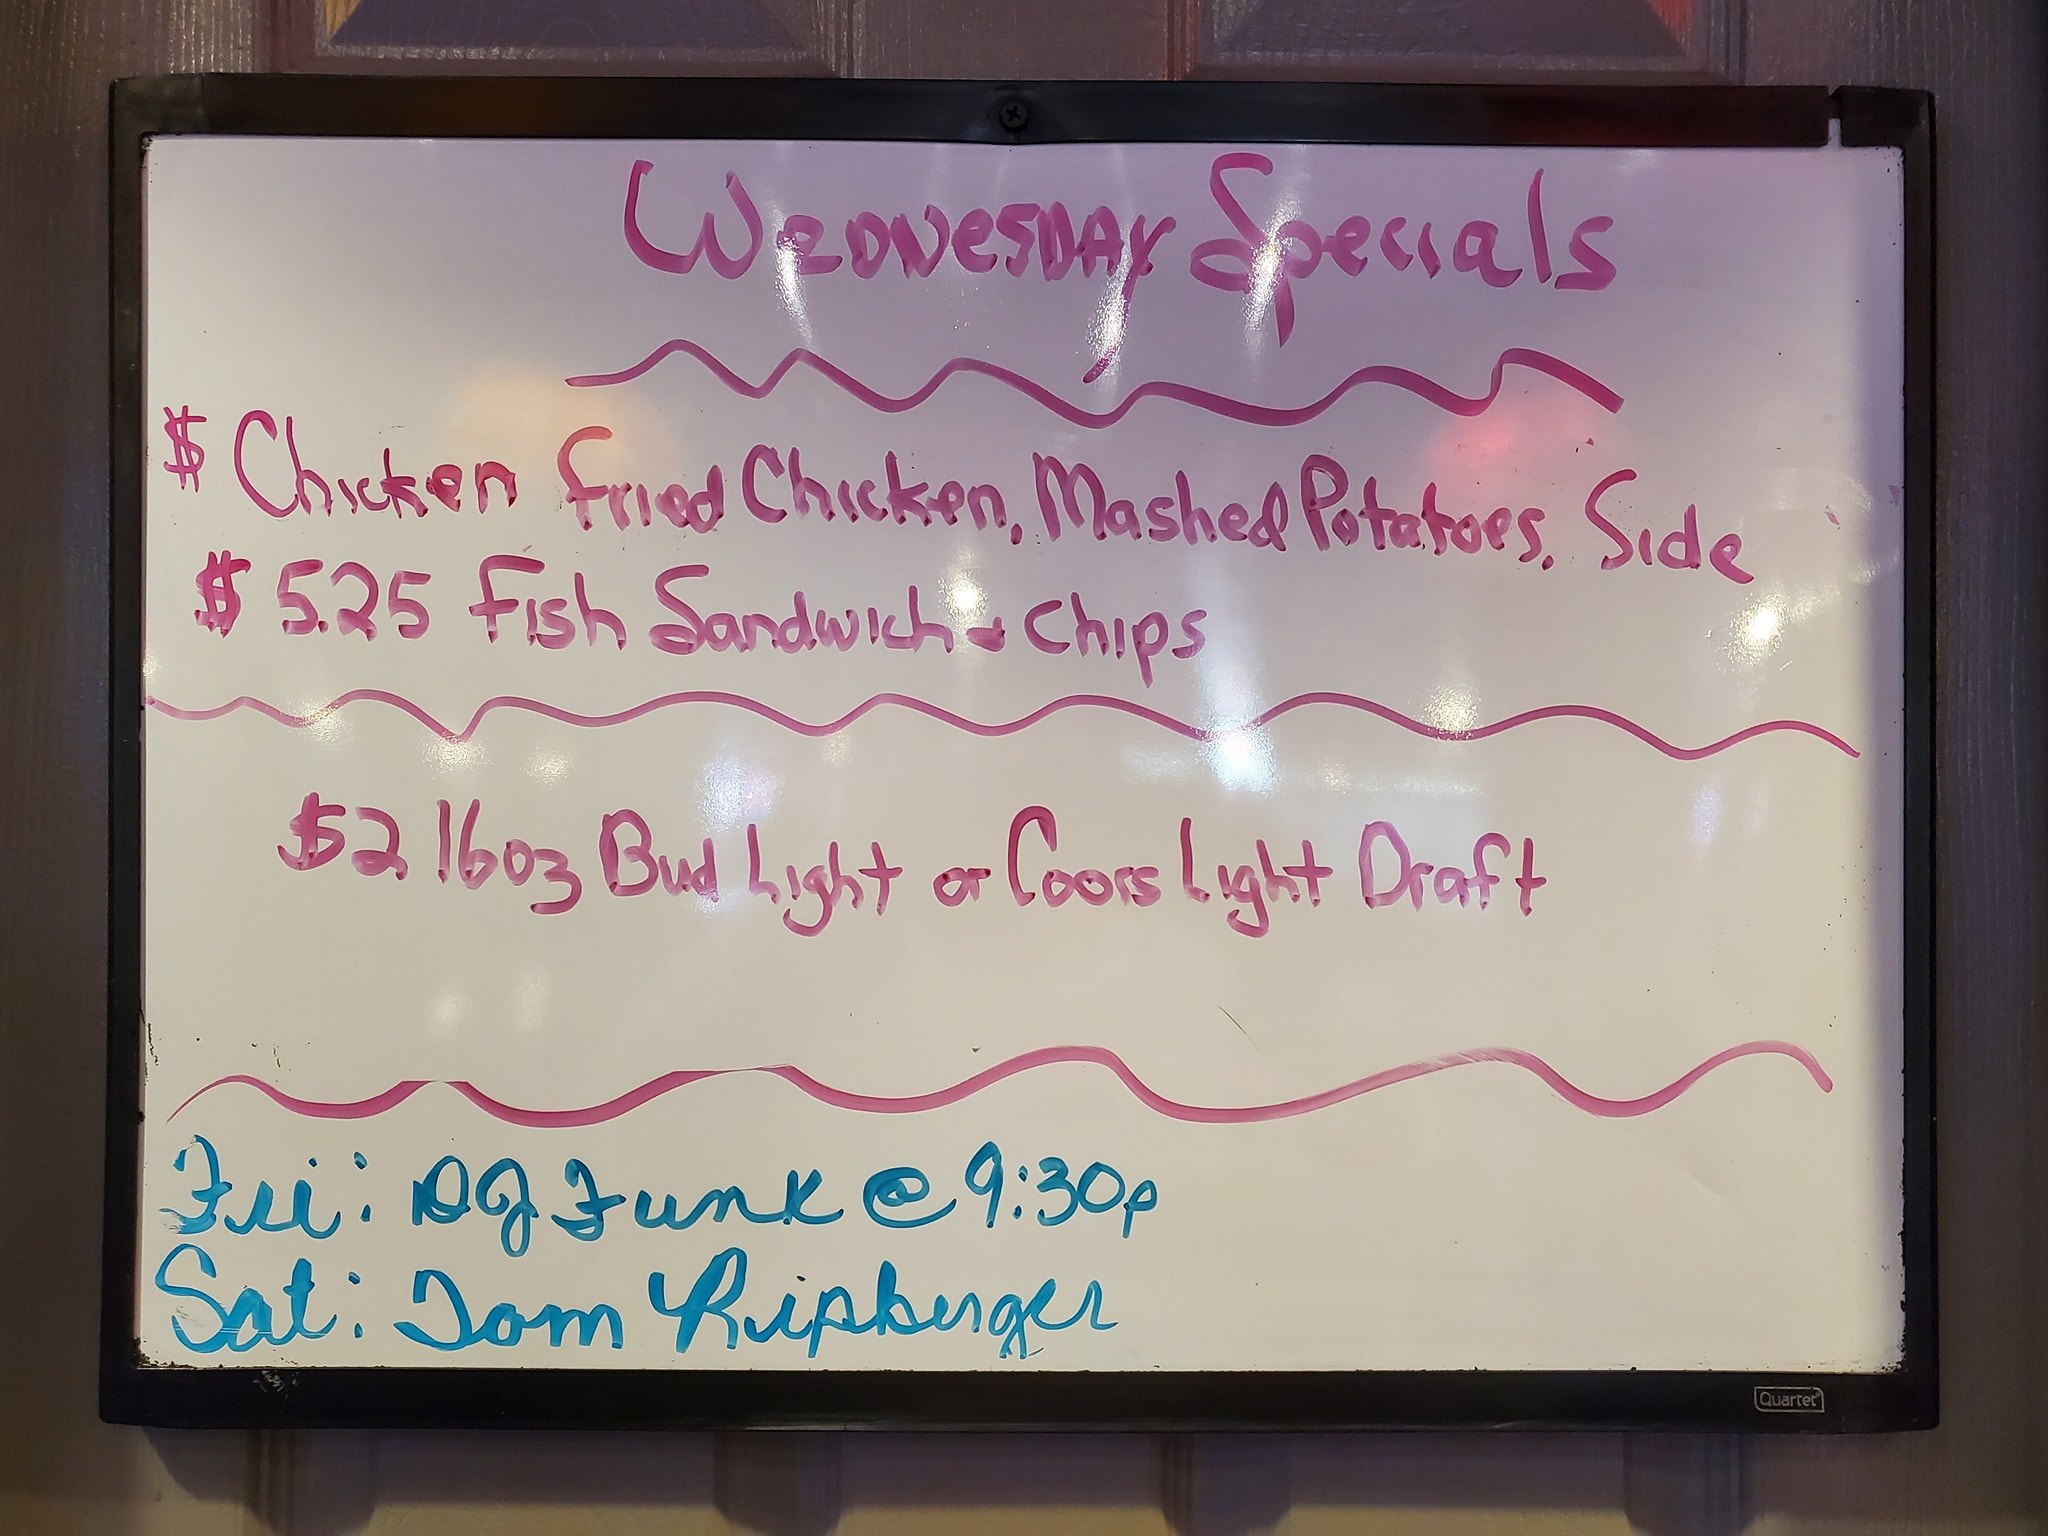 Wednesday Specials
$ Chicken Fried Chicken, Mashed Potatoes, Side
$ 5.25 Fish Sandwich & Chips
$2 16oz Bud Light or Coors Light Draft
Fri: DJ Funk @ 9:30p
Sat: Tom Ripberger
Quartet